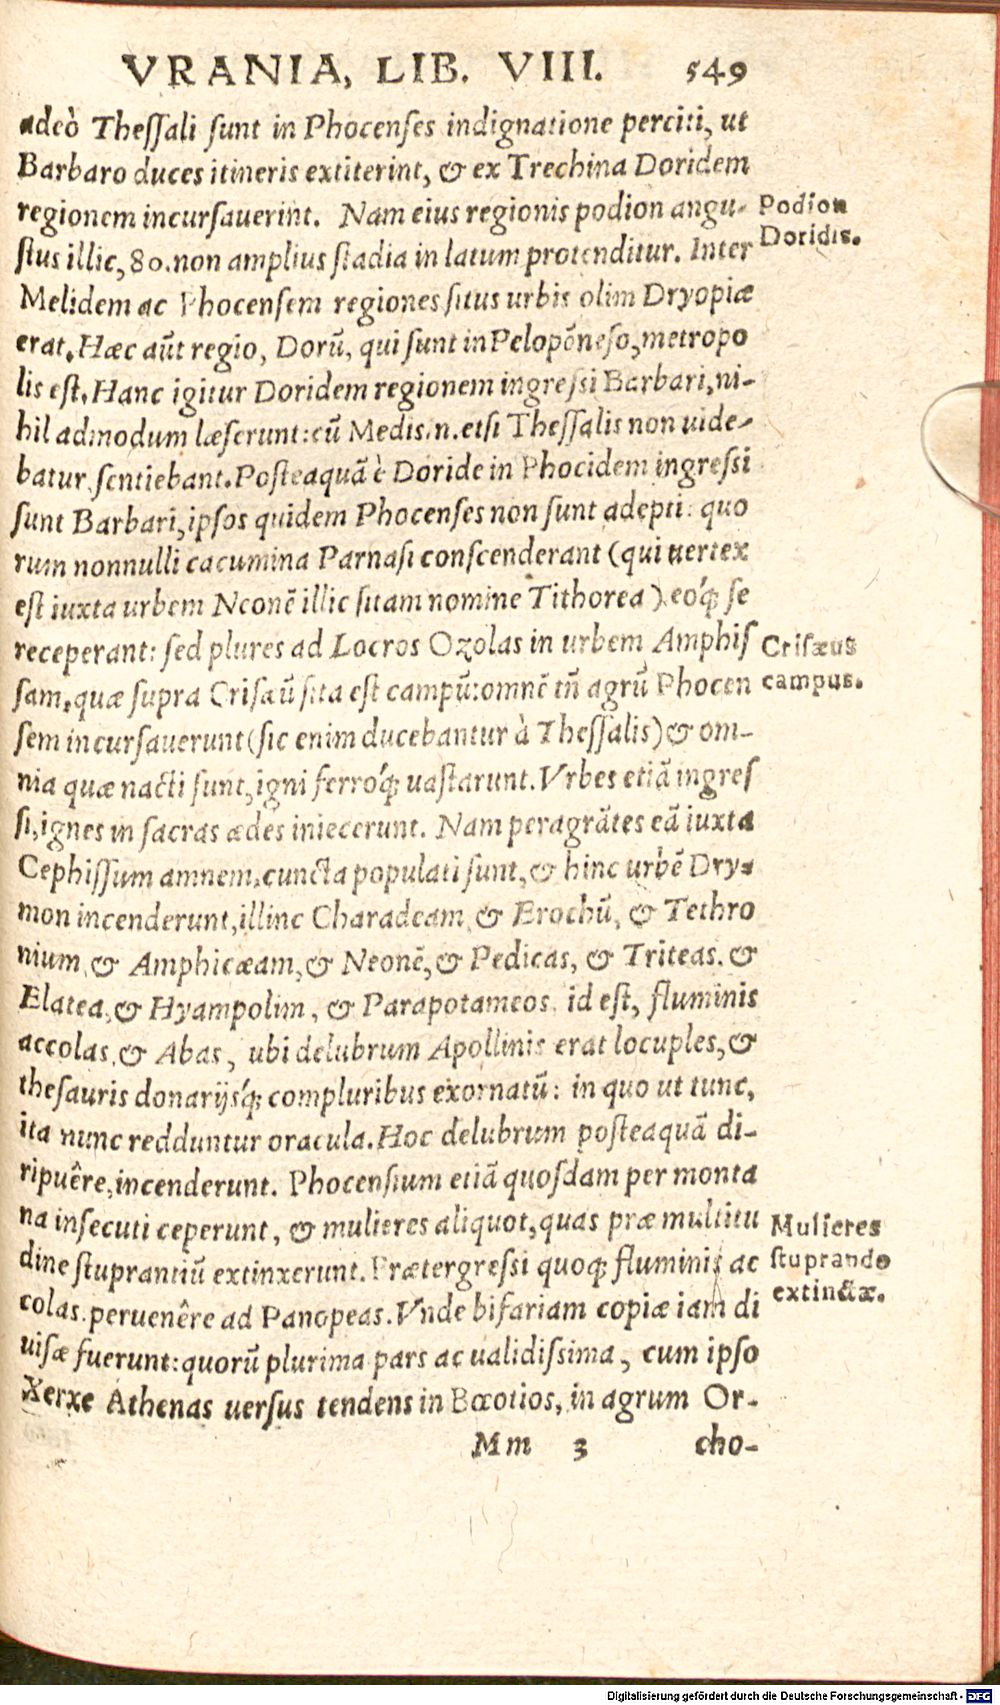 VRANIA, LIB. VIII. 549
adeò Theſſali ſunt in Phocenſes indignatione perciti, ut
Barbaro duces itineris extiterint, & ex Trechina Doridem
regionem incurſauerint. Nam eius regionis podion angu-
ſtus illic, 80. non amplius ſtadia in latum protenditur. Inter
Podion
Doridis.
Melidem ac Phocenſem regiones ſitus urbis olim Dryopiæ
erat. Hæc aũt regio, Dorũ, qui ſunt in Pelopõneſo, metropo
lis eſt. Hanc igitur Doridem regionem ingreſsi Barbari, ni-
hil admodum læſerunt: cũ Medis .n. etſi Theſſalis non uide-
batur, ſentiebant. Poſteaquã è Doride in Phocidem ingreſsi
ſunt Barbari, ipſos quidem Phocenſes non ſunt adepti: quo
rum nonnulli cacumina Parnaſi conſcenderant (qui uertex
eſt iuxta urbem Neonẽ illic ſitam nomine Tithorea) eoq́; ſe
receperant: ſed plures ad Locros Ozolas in urbem Amphiſ
ſam, quæ ſupra Criſæũ ſita eſt campũ: omnẽ tñ agrũ Phocen
Criſæus
campus.
ſem incurſauerunt (ſic enim ducebantur à Theſſalis) & om-
nia quæ nacti ſunt, igni ferroq́; uaſtarunt. Vrbes etiã ingreſ
ſi, ignes in ſacras ædes iniecerunt. Nam peragrãtes eã iuxta
Cephiſſum amnem, cuncta populati ſunt, & hinc urbẽ Dry-
mon incenderunt, illinc Charadeam, & Erochũ, & Tethro
nium, & Amphicæam, & Neonẽ, & Pedicas, & Triteas, &
Elatea, & Hyampolim, & Parapotameos, id eſt, fluminis
accolas, & Abas, ubi delubrum Apollinis erat locuples, &
theſauris donarijsq́; compluribus exornatũ: in quo ut tunc,
ita nunc redduntur oracula. Hoc delubrum poſteaquã di-
ripuêre, incenderunt. Phocenſium etiã quoſdam per monta
na inſecuti ceperunt, & mulieres aliquot, quas præ multitu
dine ſtuprantiũ extinxerunt. Prætergreſsi quoq; fluminis ac
Mulieres
ſtuprando
extinctæ.
colas, peruenêre ad Panopeas. Vnde bifariam copiæ iam di
uiſæ fuerunt: quorũ plurima pars ac ualidiſsima, cum ipſo
Xerxe Athenas uerſus tendens in Bœotios, in agrum Or-
Mm 3 cho-
Digitalisierung gefördert durch die Deutsche Forschungsgemeinschaft - DFG